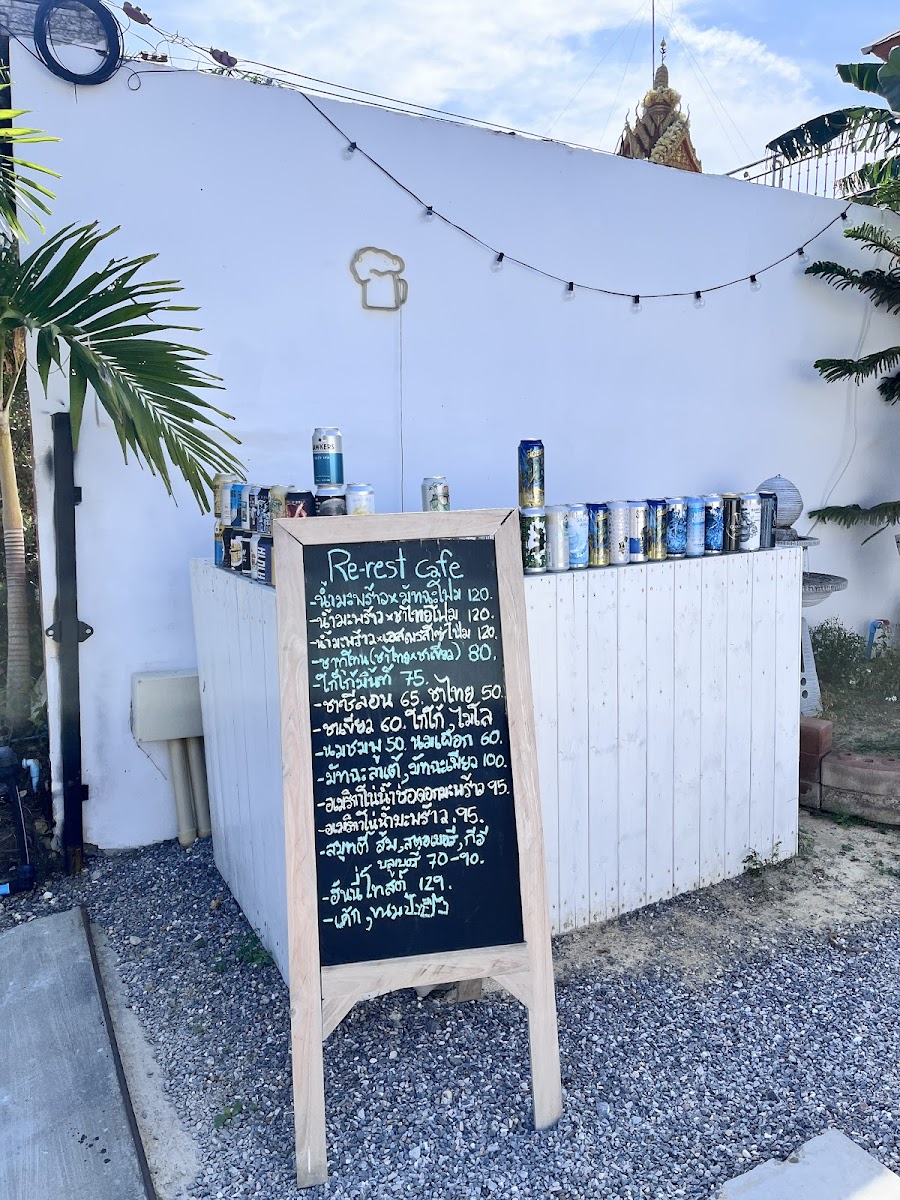 Re-rest Cafe
-น้ำมะพร้าว×มัทฉะโฟม 120.
-น้ำมะพร้าว×ชาไทยโฟม 120.
-น้ำมะพร้าว×เอสเพรสโซ่โฟม 120.
-ชาทูโทน(ชาไทย×ชาเขียว) 80.
-โกโก้มิ้นท์ 75.
-ชาซีลอน 65. ชาไทย 50.
-ชาเขียว 60. โกโก้,ไมโล
-นมชมพู 50. นมเผือก 60.
-มัทฉะลาเต้,มัทฉะเพียว 100.
-อเมริกาโน่น้ำช่อดอกมะพร้าว 95.
-อเมริกาโน่น้ำมะพร้าว. 95.
-สมูทตี้ ส้ม,สตอเบอรี่,กีวี่
บลูเบอรี่ 70-90.
-ฮันนี่โทสต์ 129.
-เค้ก,ขนมปังปิ้ง